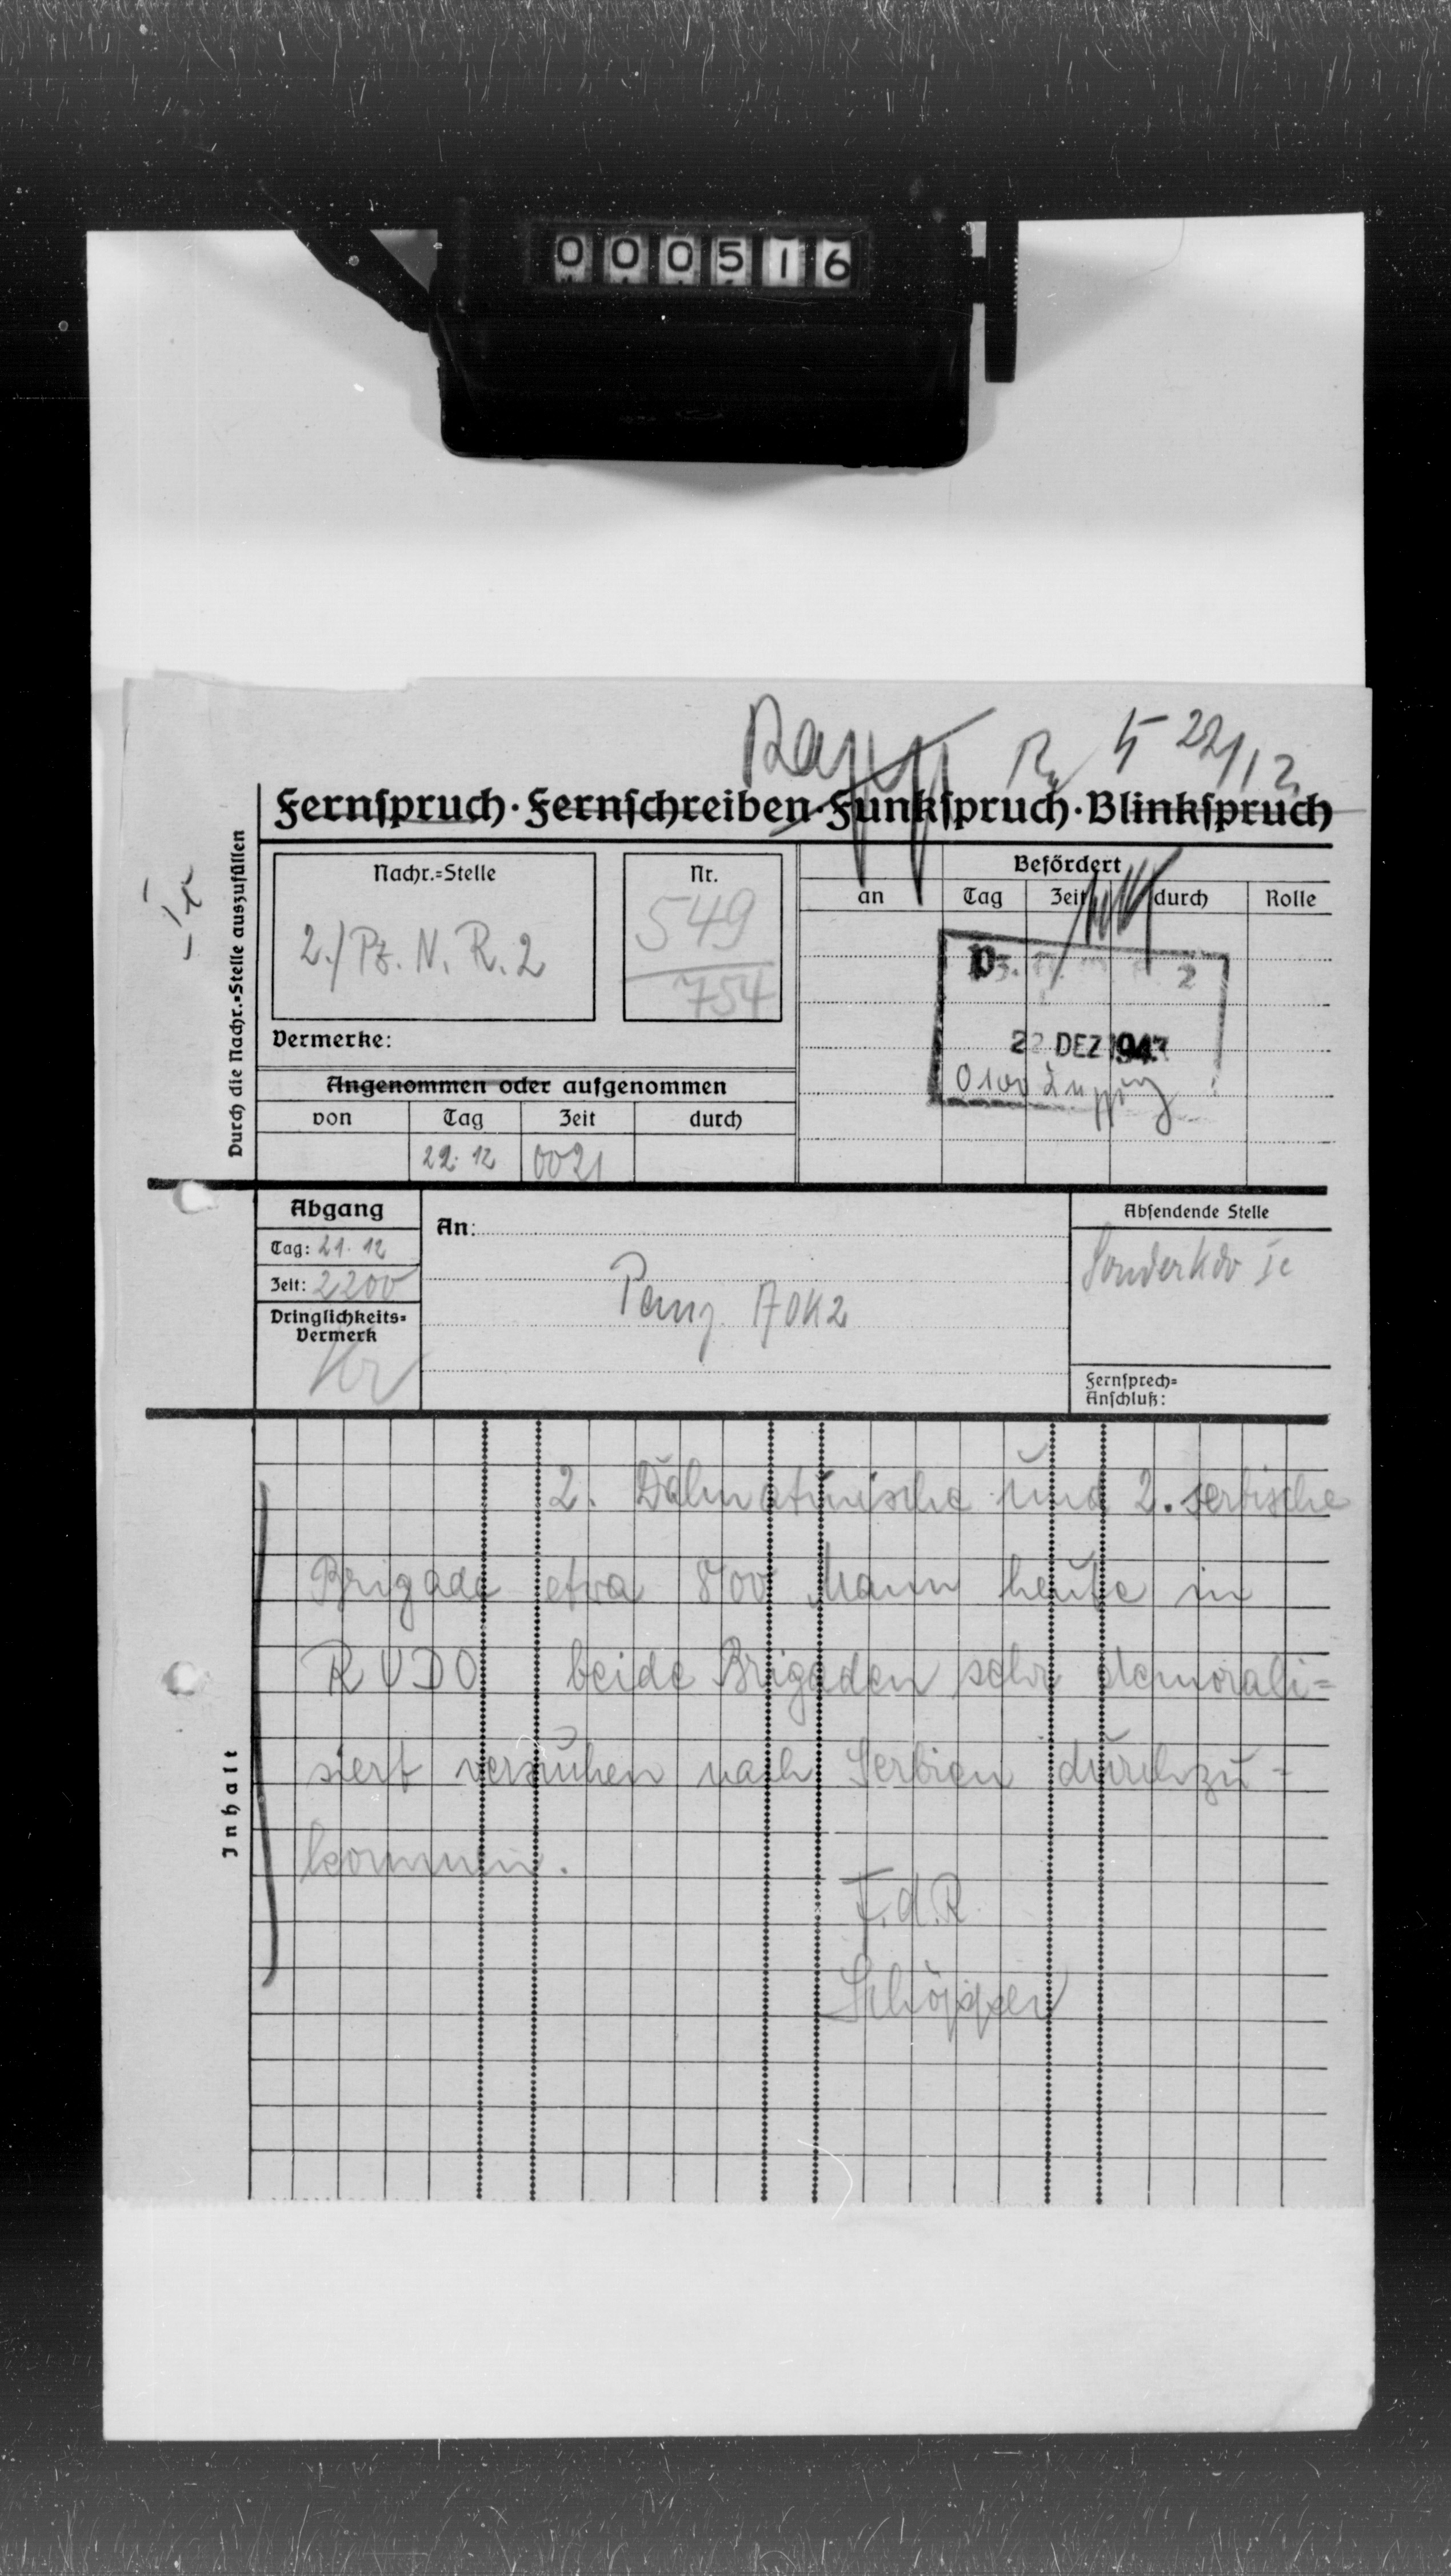 000516
22/12
Fernspruch · Fernschreiben · Funkspruch · Blinkspruch
Durch die Nachr.=Stelle auszufüllen
Nachr.=Stelle
2./Pz. N. R. 2
Nr.
549
754
Vermerke:
Angenommen oder aufgenommen
von Tag Zeit durch
22. 12 0021
Befördert
an Tag Zeit durch Rolle
22 DEZ 1943
0100
Abgang
Tag: 21. 12
Zeit: 2200
Dringlichkeits=
Vermerk
Kr
An:
Panz. AOK2
Absendende Stelle
Sonderkdo Ic
Fernsprech=
Anschluß:
Inhalt
2. Dalmatinische und 2. serbische
Brigade etwa 800 Mann heute in
RUDO beide Brigaden sehr demorali=
siert versuchen nach Serbien durchzu=
kommen.
F.d.R.